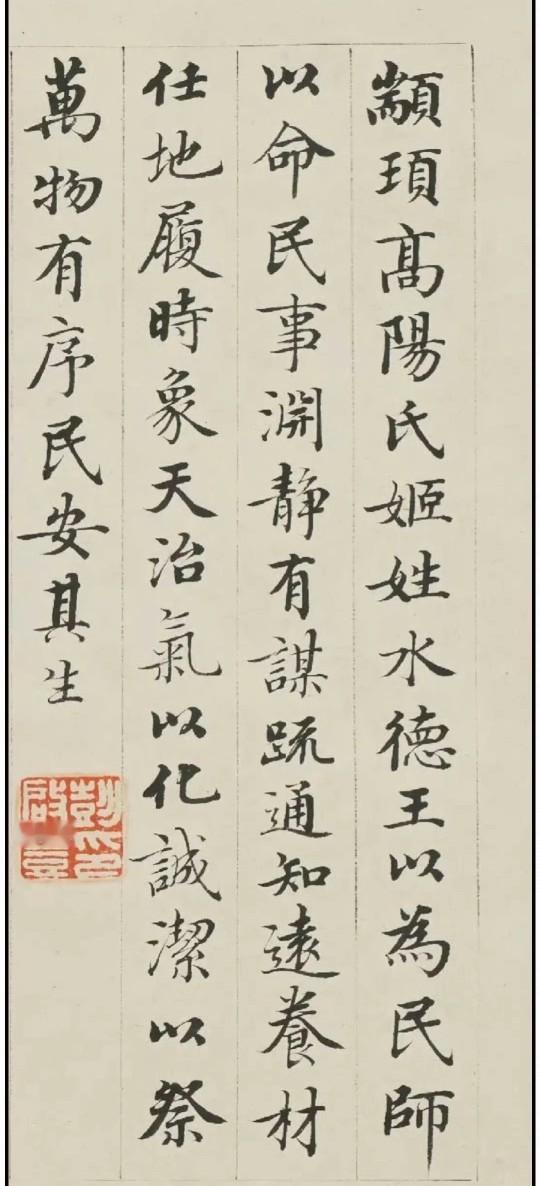 顓頊高陽氏姬姓水德王以為民師
以命民事淵静有謀疏通知遠養材
任地履時象天治氣以化誠潔以祭
萬物有序民安其生